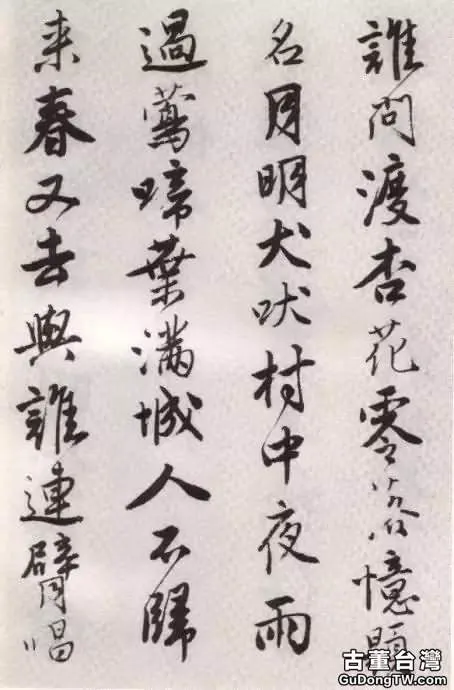 誰問渡杏花零落憶題
名月明犬吠村中夜雨
過鶯啼葉滿城人不歸
来春又去與誰連臂唱
古董台灣
GuDongTW.com